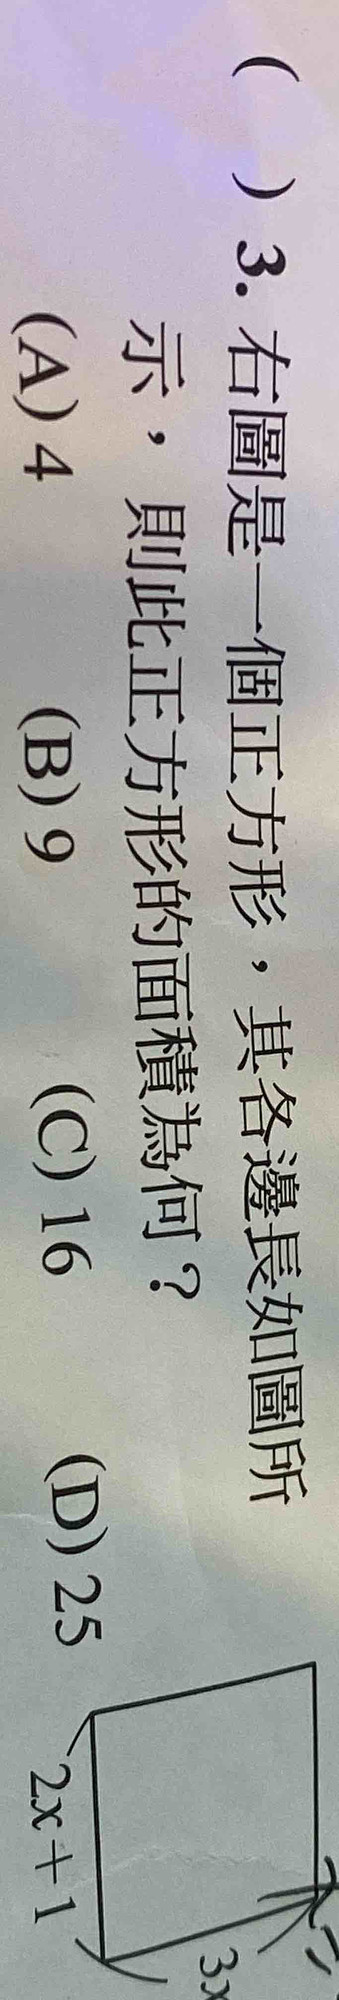 ( ) 3. 右圖是一個正方形，其各邊長如圖所
示，則此正方形的面積為何？
(A) 4 (B) 9 (C) 16 (D) 25
2x+1